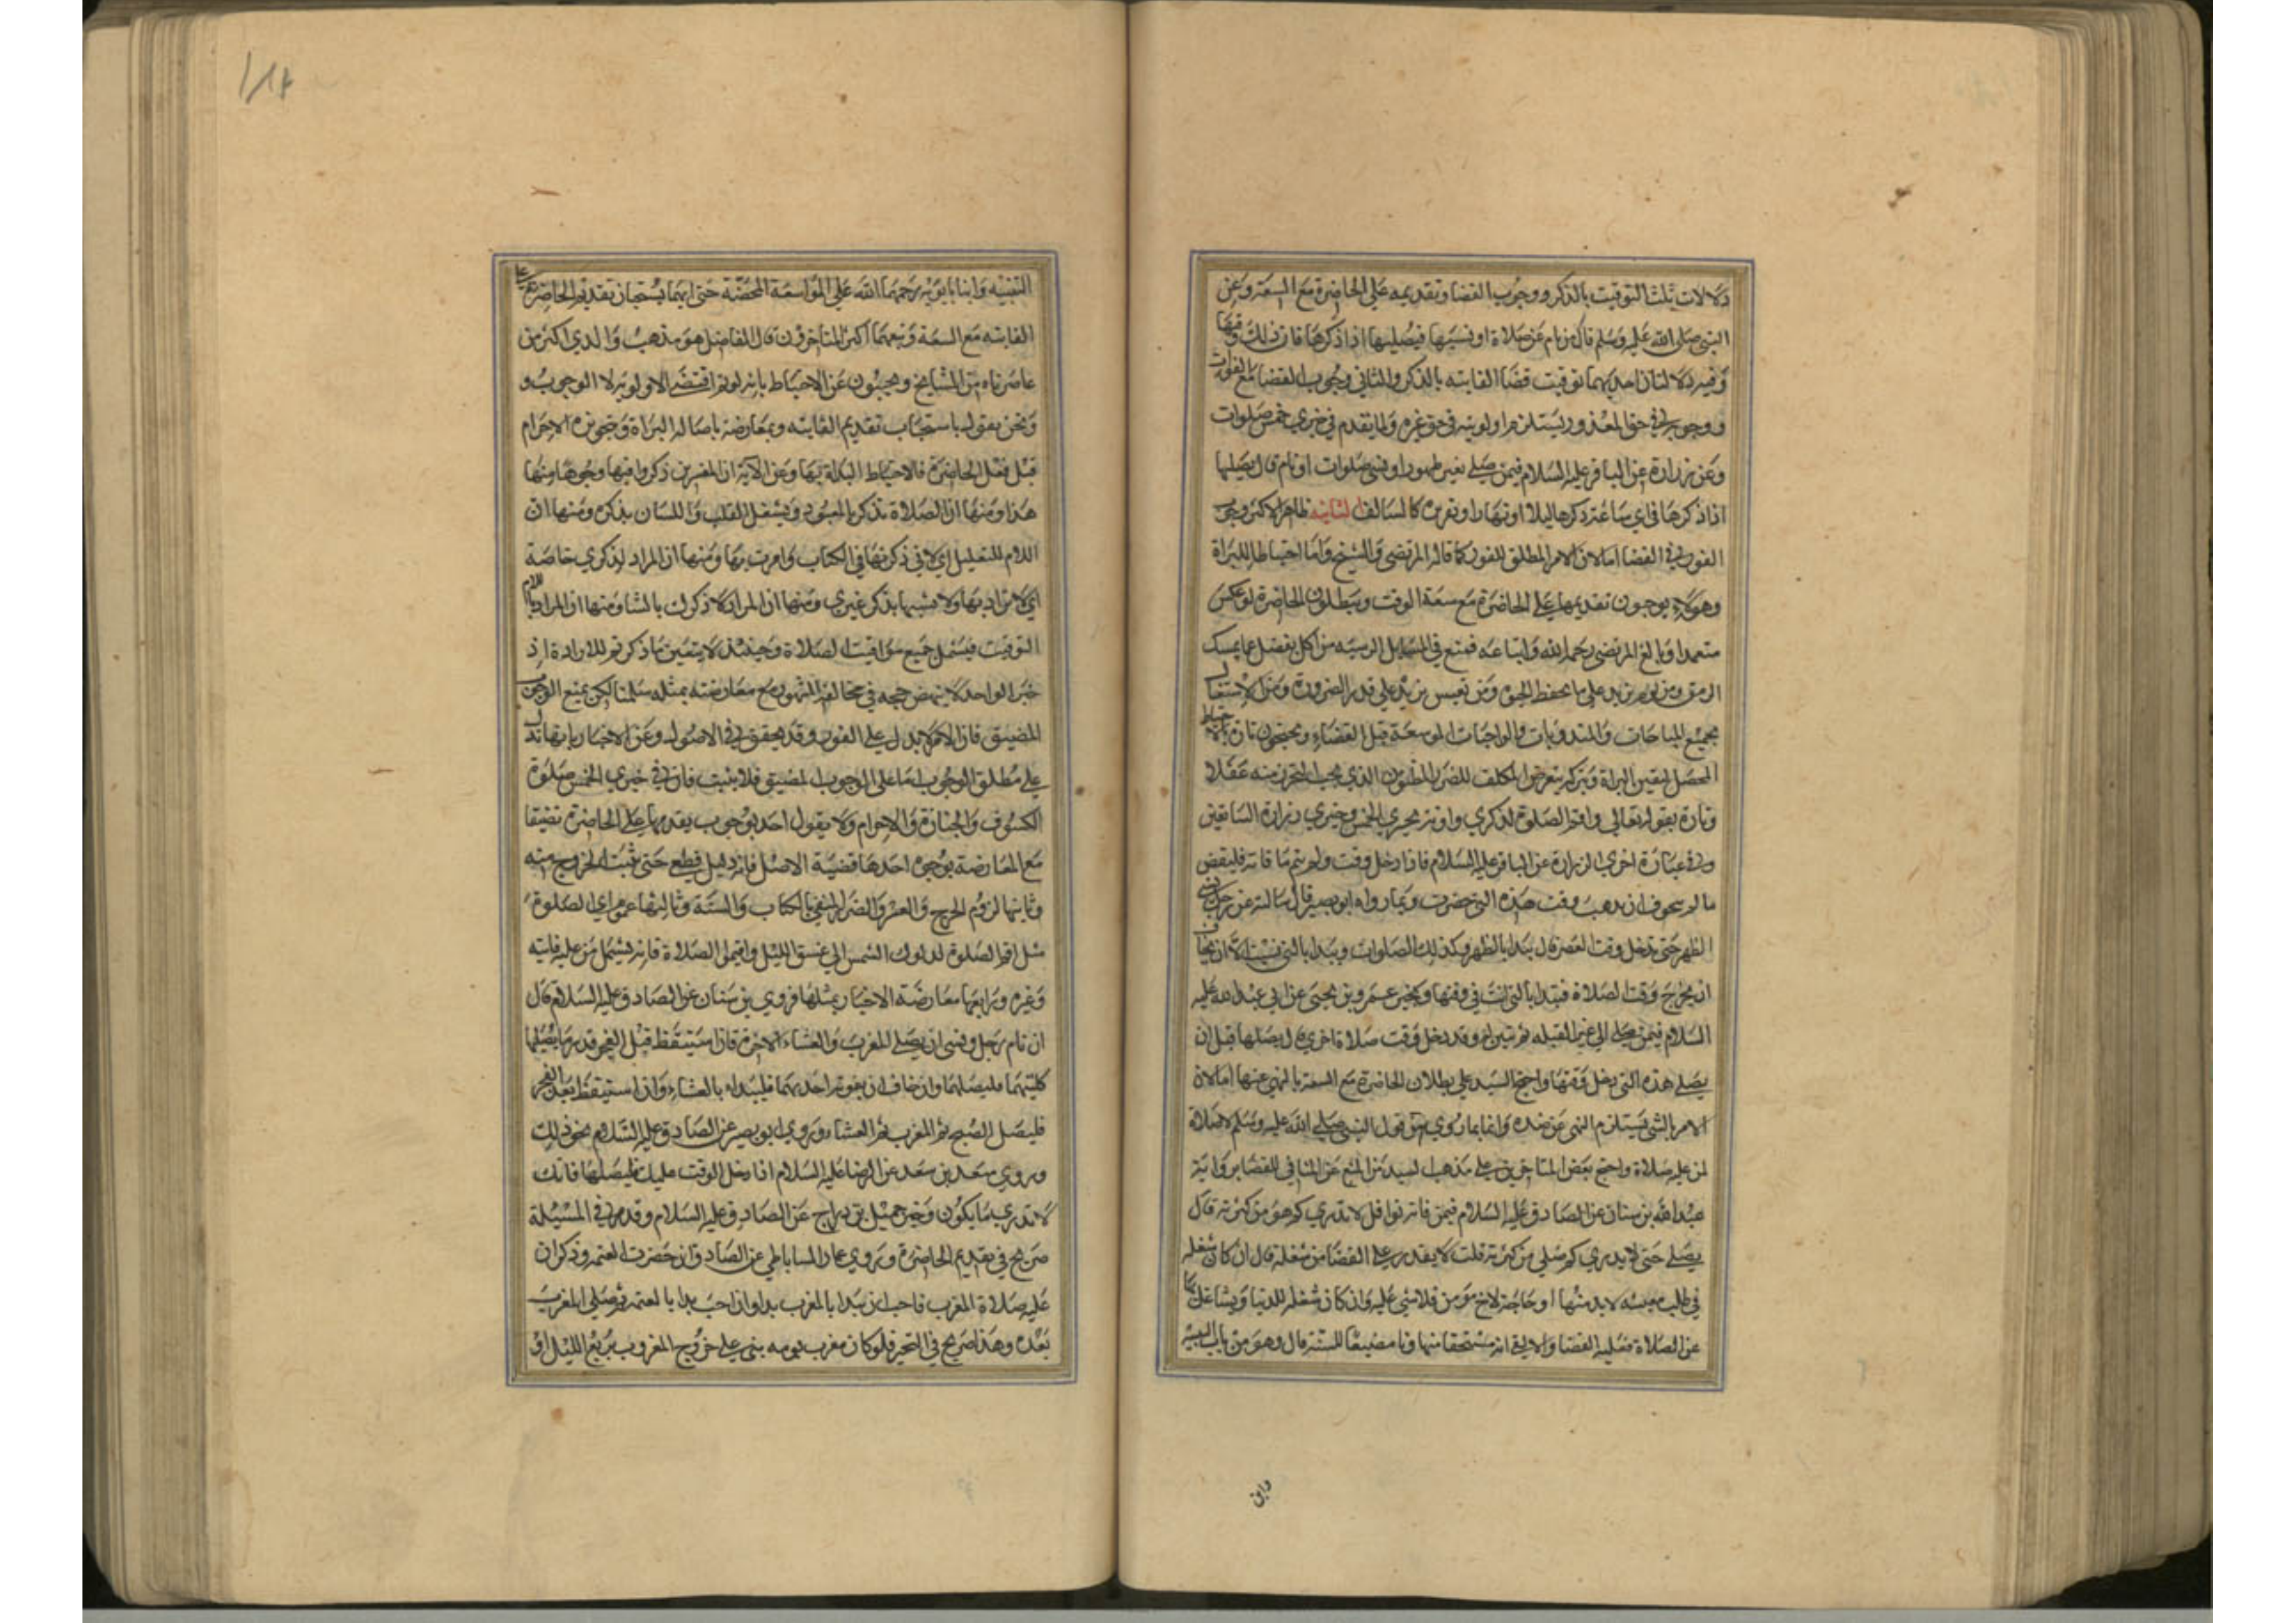 دلالات ثلث التوقيت بالذكر ووجوب القضا وتقديمه على الحاضرة مع السعة وعن
النبي صلى الله عليه وسلم قال من نام عن صلاة او نسيها فيصليها اذا ذكرها فان ذلك وقتها
وفيه دلالتان احديهما توقيت قضا الفايته بالذكر والثاني وجوب القضا مع الفوات
ووجوبه في حق المعذور يستلزم اولويته في حق غيره ولما تقدم في خبري خمس صلوات
وعن زرارة عن الباقر عليه السلام فيمن صلى بغير طهور او نسي صلوات او نام قال يصليها
اذا ذكرها في اي ساعة ذكرها ليلا او نهارا وتقريره كالسالف الثانيه ظاهر الاكثر وجوب
الفور في القضا اما لان الامر المطلق للفور كما قاله المرتضى والشيخ واما احتياطا للبراة
وهولاء يوجبون تقديمها على الحاضرة مع سعة الوقت ويبطلون الحاضرة لو عكس
متعمدا وبالغ المرتضى رحمه الله واتباعه فمنع في المسايل الرسيه من اكل يفضل عما يمسك
الرمق ومن نوم يزيد على ما يحفظ الحيوة ومن تعيش يزيد على قدر الضرورة ومن الاشتغال
بجميع المباحات والمندوبات والواجبات الموسعة قبل القضاء ويحتجون تارة بالاحتياط
المحصل ليقين البراة وبتركه يتعرض المكلف للضرر المظنون الذي يجب التحرز منه عقلا
وتارة بقوله تعالى واقم الصلوة لذكري واوتر بخبري الخمس وخبري زرارة السابقين
وفي عبارة اخرى لزرارة عن الباقر عليه السلام فاذا دخل وقت ولم يتم ما فاته فليقض
ما لم يتخوف ان يذهب وقت هذه التي حضرت وبما رواه ابو بصير قال سالته عن رجل نسي
الظهر حتى تدخل وقت العصر قال يبدا بالظهر وكذلك الصلوات ويبدا بالتي نسيت الا ان يخاف
ان يخرج وقت الصلاة فتبدا بالتي انت في وقتها وبخبر عمرو بن يحيى عن ابي عبد الله عليه
السلام فيمن صلى الى غير القبله ثم تبين له وقد دخل وقت صلاة اخرى قال يصلها قبل ان
يصلي هذه التي دخل وقتها واحتج السيد على بطلان الحاضرة مع السعة بالنهي عنها اما لان
الامر بالشي يستلزم النهي عن ضده واما بما روي من قول النبي صلى الله عليه وسلم لا صلاة
لمن عليه صلاة واحتج بعض المتاخرين على مذهب السيد من المنع عن المنافي للقضا برواية
عبد الله بن سنان عن الصادق عليه السلام فيمن فاته نوافل لا تدري كم هو من كثرته قال
يصلي حتى لا يدري كم صلى من كثرته قلت لا يقدر على القضا من شغله قال ان كان شغله
في طلب معيشه لا بد منها او حاجة لاخ مومن فلا شي عليه وان كان شغله للدنيا وتشاغل بها
عن الصلاة فعليه القضا والا لقي الله مستخفا متهاونا مضيعا للسنة قال وهو من باب التنبيه
وابن
١١٧
التنبيه وابنا بابويه رحمهما الله على المواسعة المحضة حتى انهما يستحبان تقديم الحاضرة على
الفايته مع السعة وتبعهما اكثر المتاخرون قال الفاضل هو مذهب والدي اكثر من
عاصرناه من المشايخ ويجيبون عن الاحتياط بانه لو تم اقتضى الاولويه لا الوجوب و
ونحن نقول باستحباب تقديم الفايته وبمعارضة باصالة البراة وتجويزه الاخترام
قبل فعل الحاضرة فالاحتياط البداة بها وعن الآية ان المفسرين ذكروا فيها وجوها منها
هذا ومنها ان الصلاة تذكر بالمعبود ويشغل القلب واللسان بذكره ومنها ان
اللام للتعليل اي لاني ذكرتها في الكتاب وامرت بها ومنها ان المراد لذكري خاصة
اي لا تراد بها ولا تشبها بذكر غيري ومنها ان المراد لاذكرك بالثنا ومنها ان المراد باللام
التوقيت فيشمل جميع مواقيت الصلاة وحينئذ لا يتعين ما ذكرتم للارادة اذ
خبر الواحد لا ينهض حجه في مخالفة المشهور مع معارضته بمثله سلمنا لكن يمنع الوجوب
المضيق فان الامر لا يدل على الفور وقد يحقق في الاصول وعن الاخبار بانها تدل
على مطلق الوجوب اما على الوجوب المضيق فلا يثبت فان في خبري الخمس صلوة
الكسوف والجنازة والاحرام ولا يقول احد بوجوب تقديمها على الحاضرة تضيقا
مع المعارضة بوجوه احدها قضية الاصل فانه دليل قطع حتى يثبت الخروج منه
وثانيها لزوم الحرج والعسر والضرر المنفي بالكتاب والسنة وثالثها عموم اي الصلوة
مثل اقم الصلوة لدلوك الشمس الى غسق الليل واقيموا الصلاة فانه يشمل من عليه فايته
وغيره ورابعها معارضة الاخبار بمثلها فروي بن سنان عن الصادق عليه السلام قال
ان نام رجل ونسي ان يصلي المغرب والعشاء الاخرة فان استيقظ قبل الفجر قدر ما يصليهما
كلتيهما فليصلهما وان خاف ان يفوته احدهما فليبدا بالعشاء وان استيقظ بعد الفجر
فليصل الصبح ثم المغرب ثم العشاء وروي ابو بصير عن الصادق عليه السلام نحو ذلك
وروي سعد بن سعد عن الرضا عليه السلام اذا دخل الوقت عليك فليصلها فانك
لا تدري ما يكون وخبر جميل بن دراج عن الصادق عليه السلام وقد مر في المسئلة
صريح في تقديم الحاضرة وروي عمار الساباطي عن الصادق ان حضرت العتمه وذكر ان
عليه صلاة المغرب فاحب ان يبدا بالمغرب بدا وان احب بدا بالعتمه ثم صلى المغرب
بعده وهذا صريح في التخير فلو كان مغرب يومه بني على خروج المغرب بربع الليل او